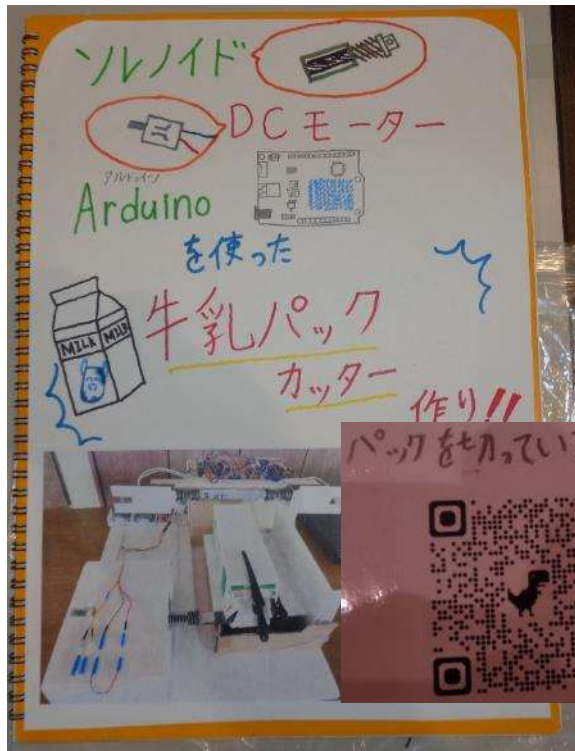 ソレノイド
DCモーター
アルドゥイーノ
Arduino
を使った
MILK MILK
牛乳パック
カッター
作り!!
パックを切ってい